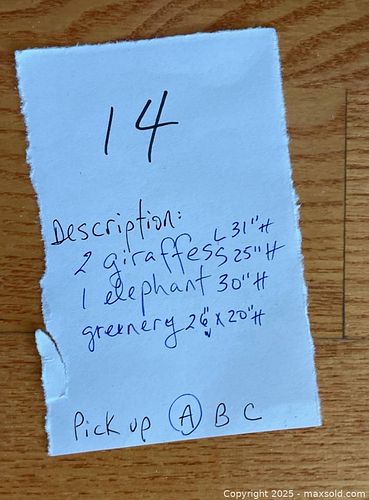 14
Description:
L 31" H
2 giraffess 25" H
1 elephant 30" H
greenery 26" x 20" H
Pick up A B C
Copyright 2025 - maxsold.com